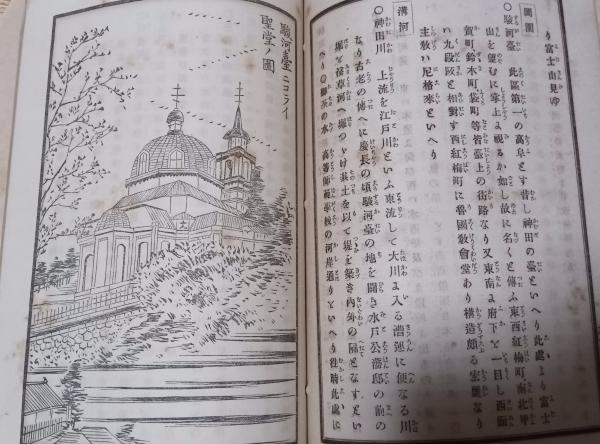 り富士山見ゆ
○駿河臺 此區第一の高阜とす昔し神田の臺といへり此處より富士
山を望むに掌上に視るか如し故に名くと傳ふ東西紅梅町南北甲
賀町鈴木町袋町等皆臺上の街路なり又東南に府下を一目し西面
ハ九段阪と相對す西紅梅町に魯國敎會堂あり構造頗る宏麗なり
主敎ハ尼格來といへり
溝河
○神田川 上流を江戸川といふ東流して大川に入る漕運に便なる川
なり古老の傳へに慶長の頃駿河臺の地を開き水戸公藩邸の前の
堀を淺草河へ掘つゞけ其土を以て堤を築き内外の隔となすとい
へり○御茶の水 高等師範學校の河岸通りといへり往時此處に
駿河臺ニコライ
聖堂ノ圖